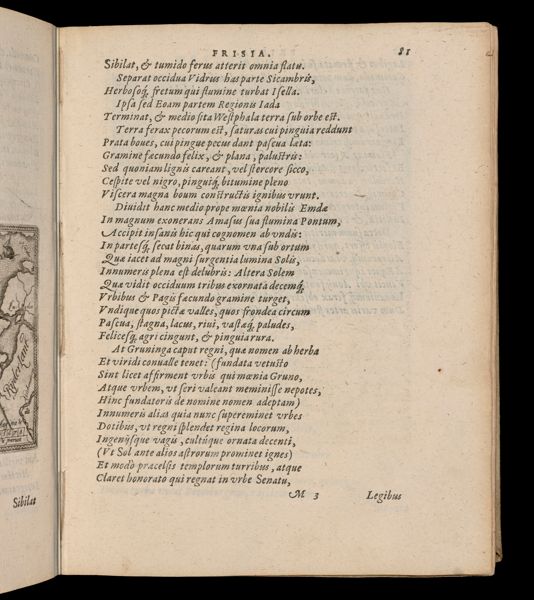 FRISIA. 81
Sibilat, & tumido ferus atterit omnia flatu.
Separat occidua Vidrus has parte Sicambris,
Herbosoq́ fretum qui flumine turbat Isella.
Ipsa sed Eoam partem Regionis Iada
Terminat, & medio sita Westphala terra sub orbe est.
Terra ferax pecorum est, saturas cui pinguia reddunt
Prata boues, cui pingue pecus dant pascua læta:
Gramine fæcundo felix, & plana, palustris:
Sed quoniam lignis careant, vel stercore sicco,
Cespite vel nigro, pinguiq́ bitumine pleno
Viscera magna boum constructis ignibus vrunt.
Diuidit hanc medio prope mœnia nobilis Emdæ
In magnum exonerans Amasus sua flumina Pontum,
Accipit insanis hic qui cognomen ab vndis:
In partesq́ secat binas, quarum vna sub ortum
Quæ iacet ad magni surgentia lumina Solis,
Innumeris plena est delubris: Altera Solem
Quæ vidit occiduum tribus exornata decemq́,
Vrbibus & Pagis fæcundo gramine turget,
Vndique quos pictæ valles, quos frondea circum
Pascua, stagna, lacus, riui, vastæq́ paludes,
Felicesq́ agri cingunt, & pinguia rura.
At Gruninga caput regni, quæ nomen ab herba
Et viridi conualle tenet: (fundata vetusto
Sint licet affirment vrbis qui mœnia Gruno,
Atque vrbem, vt seri valeant meminisse nepotes,
Hinc fundatoris de nomine nomen adeptam)
Innumeris alias quia nunc supereminet vrbes
Dotibus, vt regni splendet regina locorum,
Ingenijsque vagis, cultúque ornata decenti,
(Vt Sol ante alios astrorum prominet ignes)
Et modò præcelsis templorum turribus, atque
Claret honorato qui regnat in vrbe Senatu,
M 3 Legibus
Sibilat